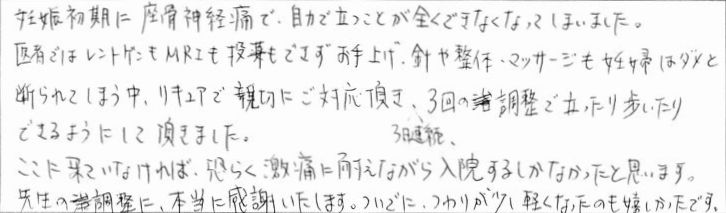 妊娠初期に座骨神経痛で、自力で立つことが全くできなくなってしまいました。
医者ではレントゲンもMRIも投薬もできずお手上げ、針や整体・マッサージも妊婦はダメと
断られてしまう中、リキュアで親切にご対応頂き、3回の調整で立ったり歩いたり
できるようにして頂きました。 3日連続、
ここに来ていなければ、恐らく激痛に耐えながら入院するしかなかったと思います。
先生の調整に、本当に感謝いたします。ついでに、つわりが少し軽くなったのも嬉しかったです。